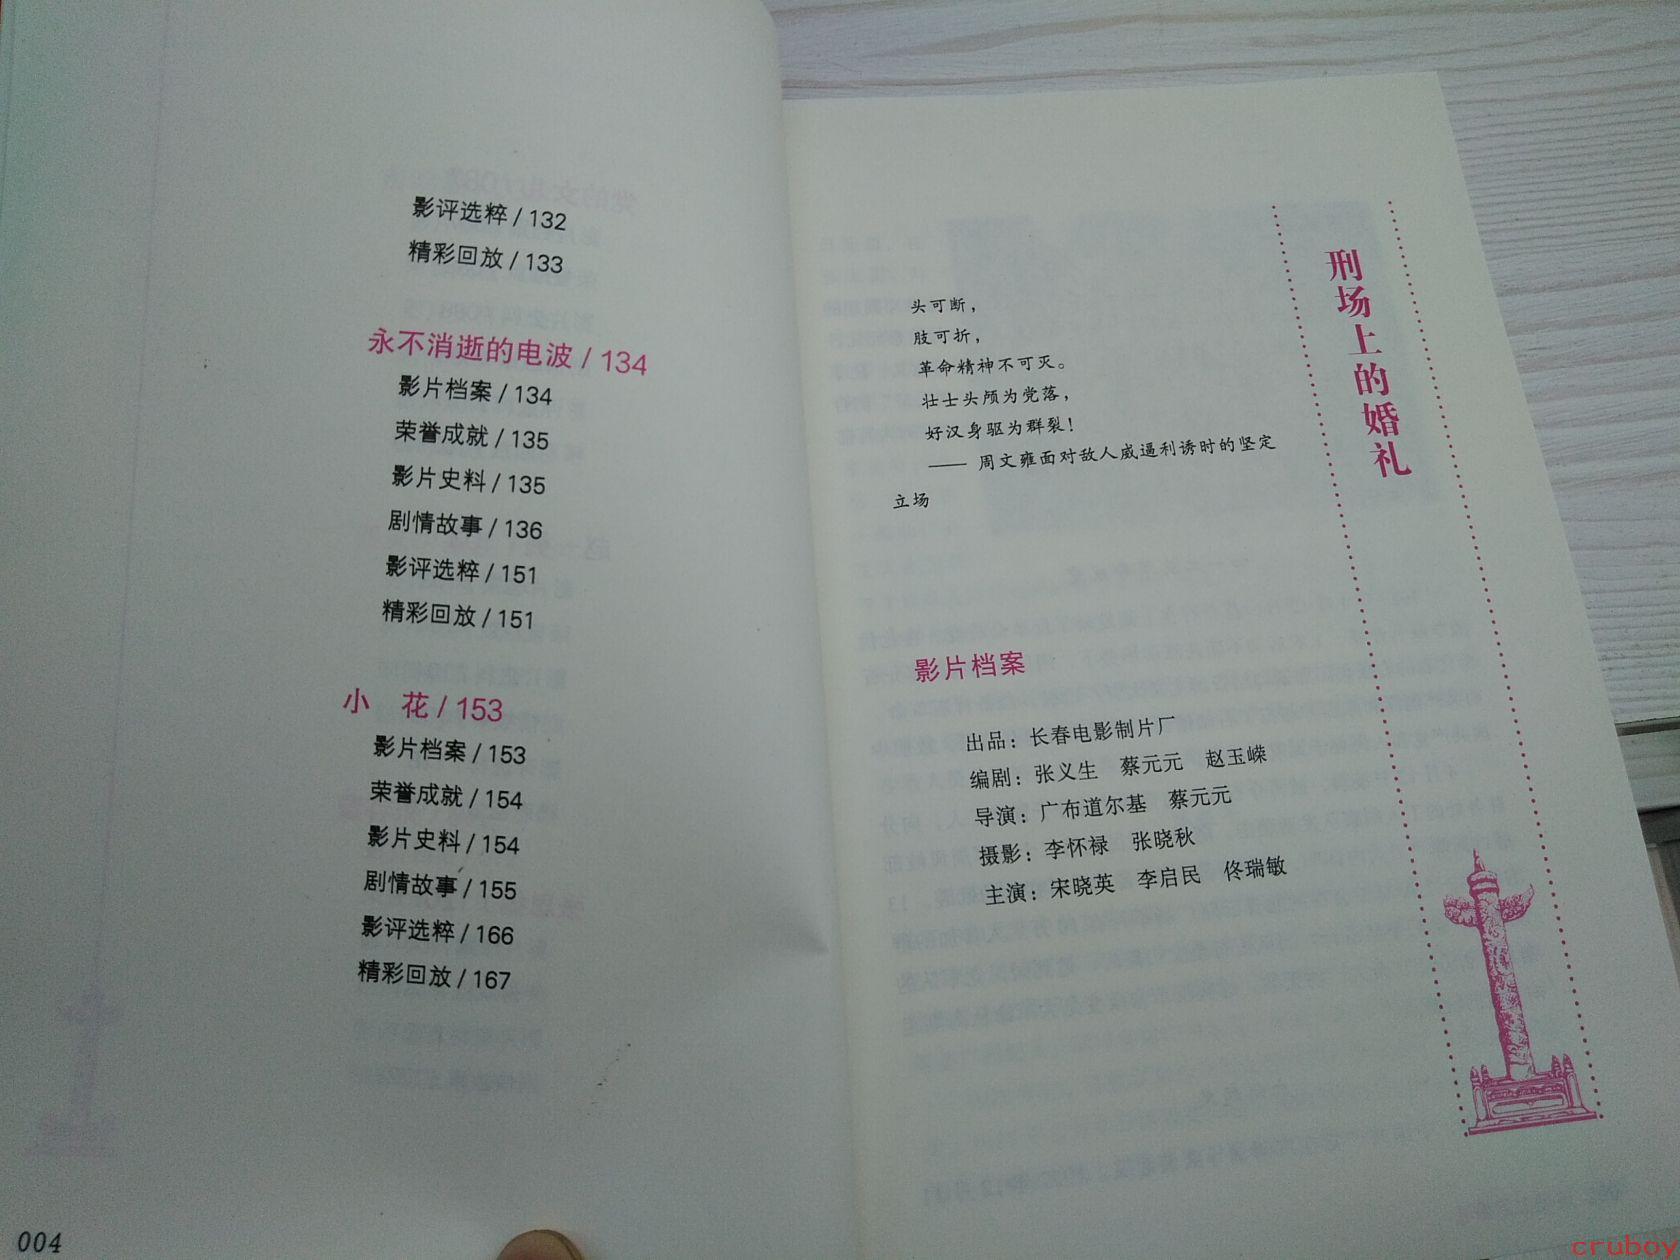 影评选粹 / 132
精彩回放 / 133
永不消逝的电波 / 134
影片档案 / 134
荣誉成就 / 135
影片史料 / 135
剧情故事 / 136
影评选粹 / 151
精彩回放 / 151
小　花 / 153
影片档案 / 153
荣誉成就 / 154
影片史料 / 154
剧情故事 / 155
影评选粹 / 166
精彩回放 / 167
004
刑场上的婚礼
头可断，
肢可折，
革命精神不可灭。
壮士头颅为党落，
好汉身驱为群裂！
—— 周文雍面对敌人威逼利诱时的坚定
立场
影片档案
出品：长春电影制片厂
编剧：张义生　蔡元元　赵玉嵘
导演：广布道尔基　蔡元元
摄影：李怀禄　张晓秋
主演：宋晓英　李启民　佟瑞敏
cruboy